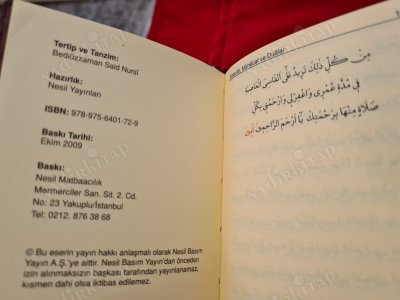 Tertip ve Tanzim:
Bediüzzaman Said Nursî
Hazırlık:
Nesil Yayınları
ISBN: 978-975-6401-72-9
Baskı Tarihi:
Ekim 2009
Baskı:
Nesil Matbaacılık
Mermerciler San. Sit. 2. Cd.
No: 23 Yakuplu/İstanbul
Tel: 0212. 876 38 68
© Bu eserin yayın hakkı anlaşmalı olarak Nesil Basım
Yayın A.Ş.'ye aittir. Nesil Basım Yayın'dan önceden
izin alınmaksızın başkası tarafından yayınlanamaz,
kısmen dahi olsa iktibas edilemez.
Münâcat ve Dualar
مِنْ كُلِّ ذٰلِكَ تَزِيدُ عَلٰى اَنْفَاسِى الْعَاصِيَةِ
فِى مُدَّةِ عُمْرِى وَاغْفِرْلِى وَارْحَمْنِى بِكُلِّ
صَلَاةٍ مِنْهَا بِرَحْمَتِكَ يَٓا اَرْحَمَ الرَّاحِمِينَ اٰمِين
NADİRKİTAP